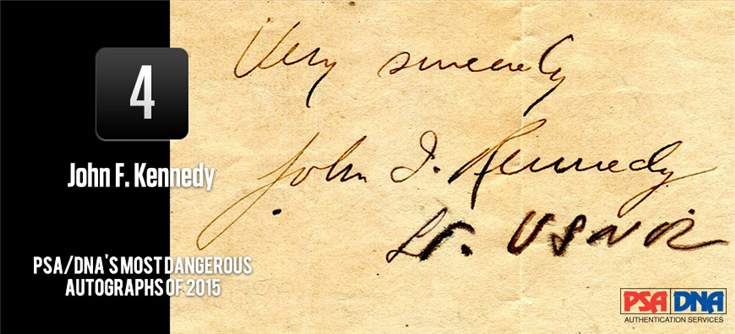 4
John F. Kennedy
PSA/DNA'S MOST DANGEROUS
AUTOGRAPHS OF 2015
Very sincerely
John F. Kennedy
Lt. USNR
PSA DNA
AUTHENTICATION SERVICES